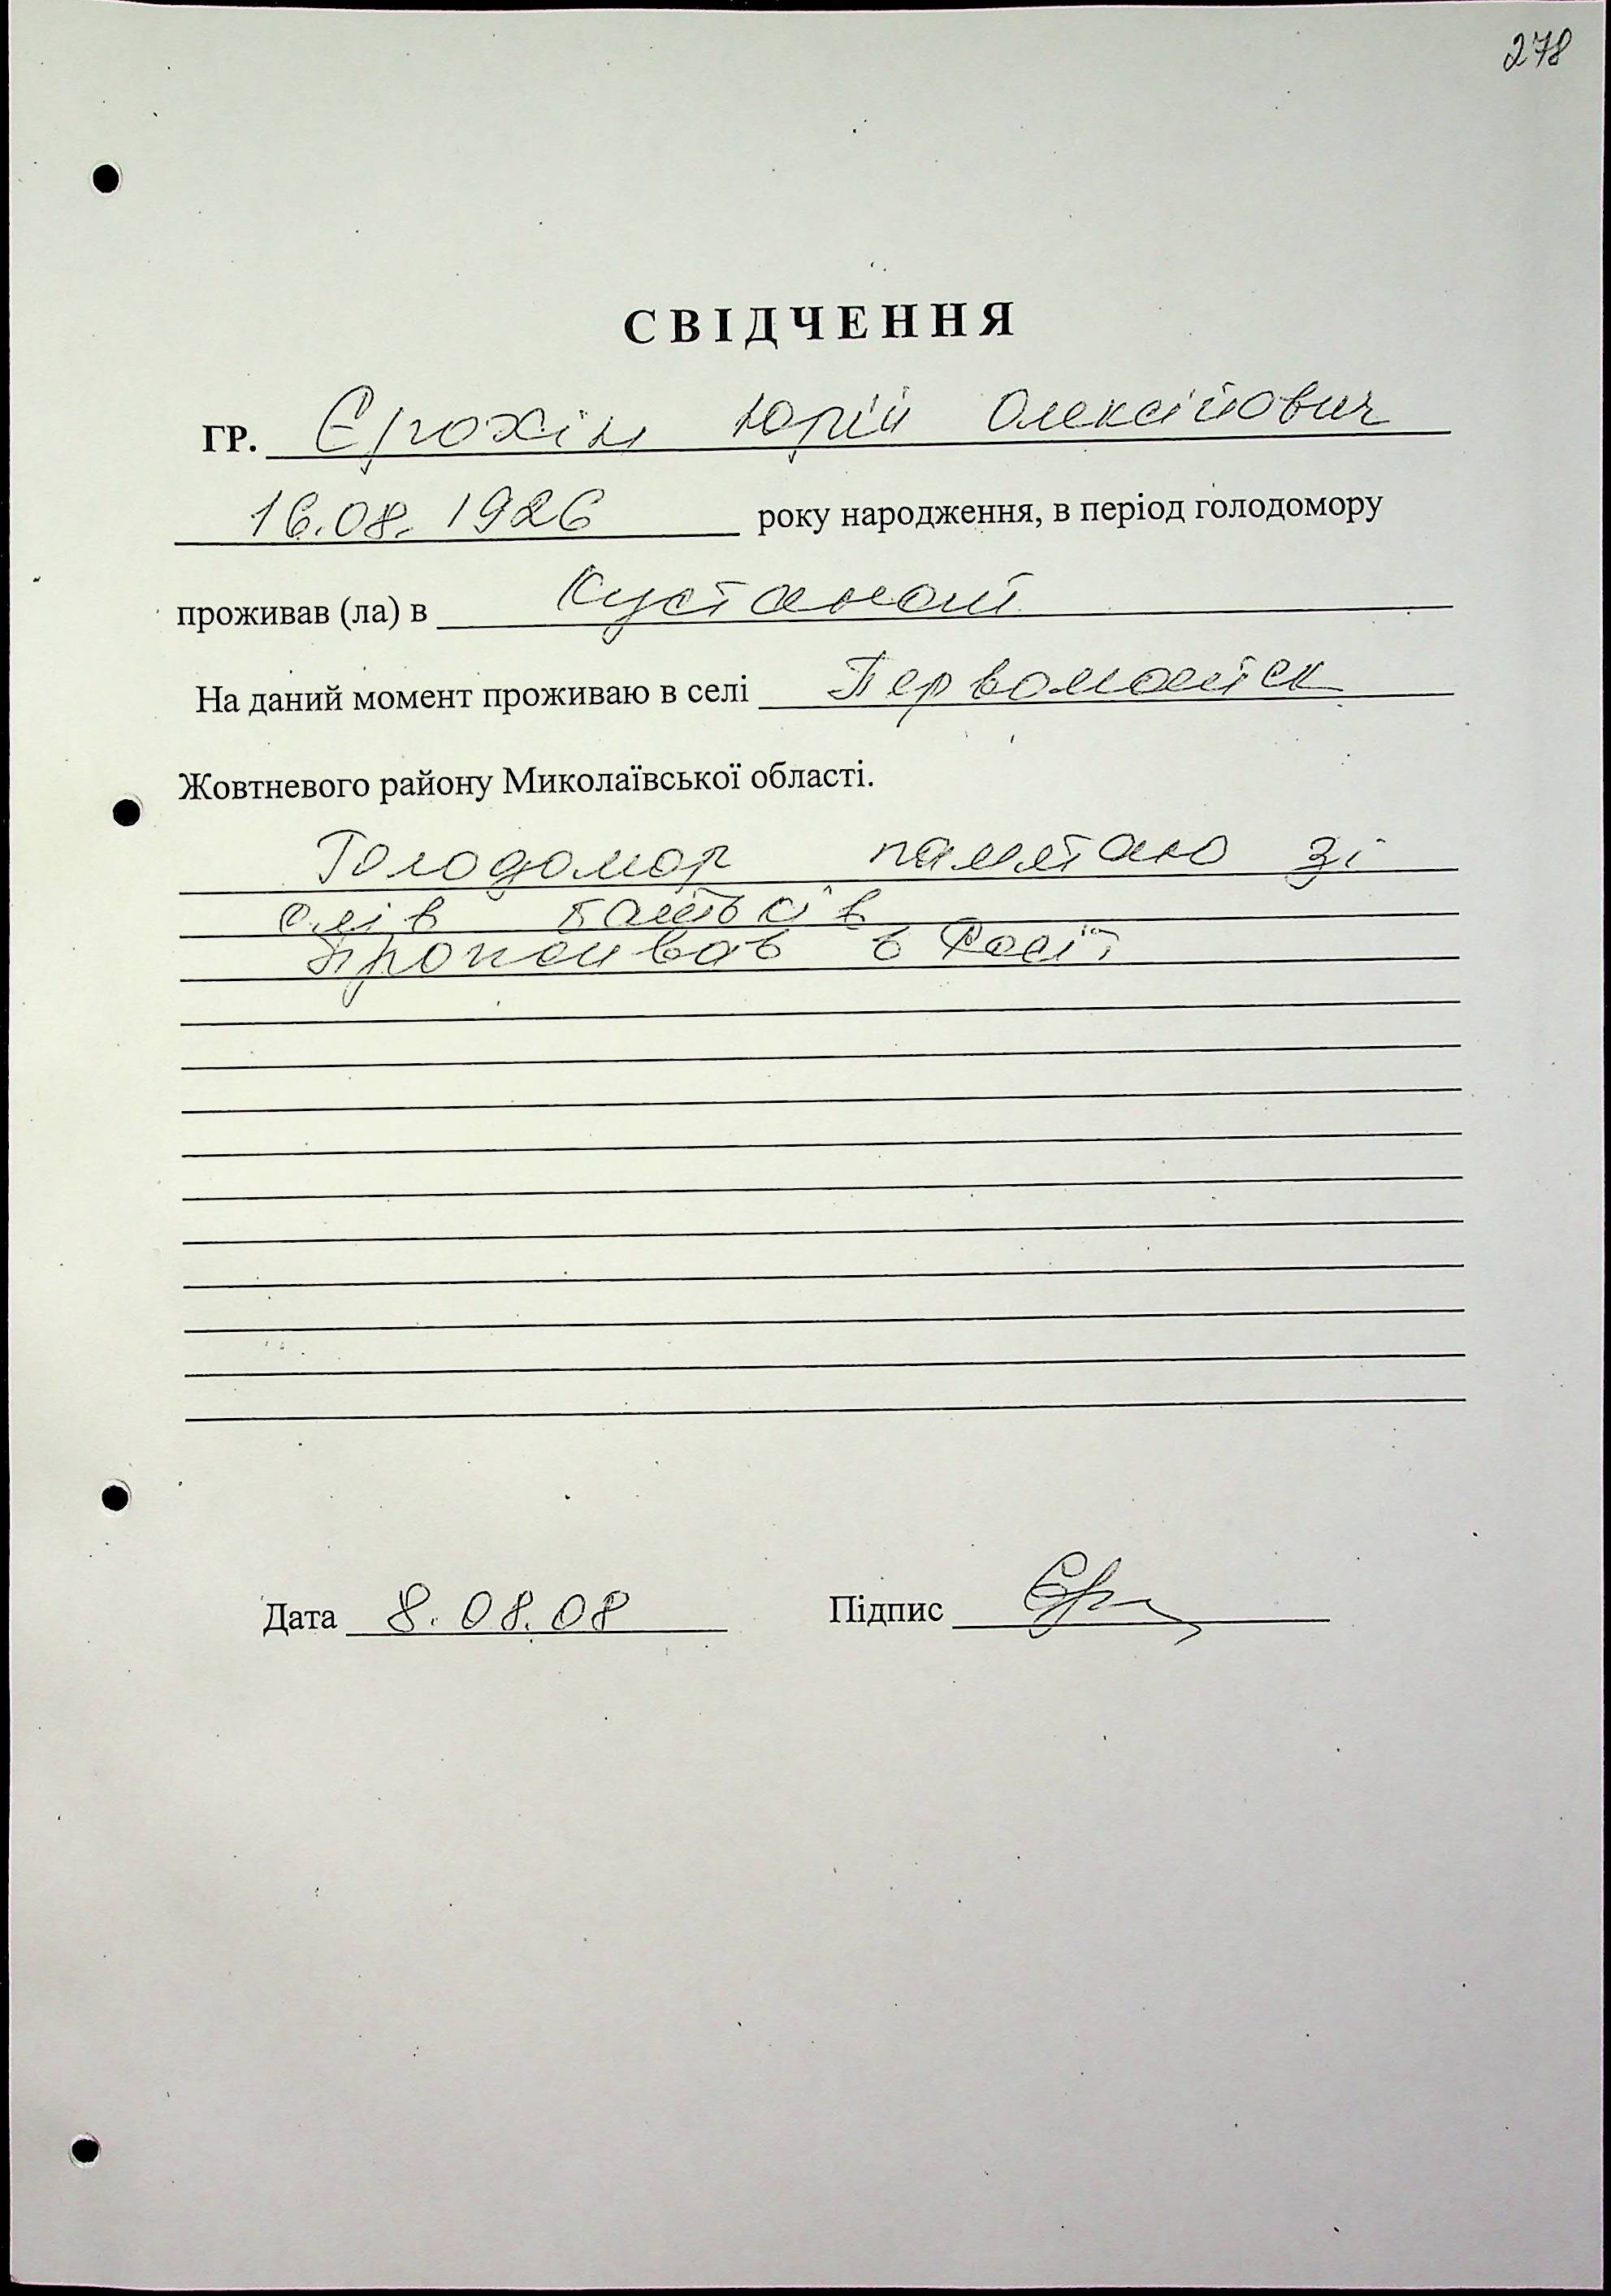 278
СВІДЧЕННЯ
ГР. Єрохін Юрій Олексійович
16.08.1926 року народження, в період голодомору
проживав (ла) в Кустанай
На даний момент проживаю в селі Первомайськ
Жовтневого району Миколаївської області.
Голодомор памятаю зі
слів батьків
Проживав в Росії
Дата 8.08.08 Підпис